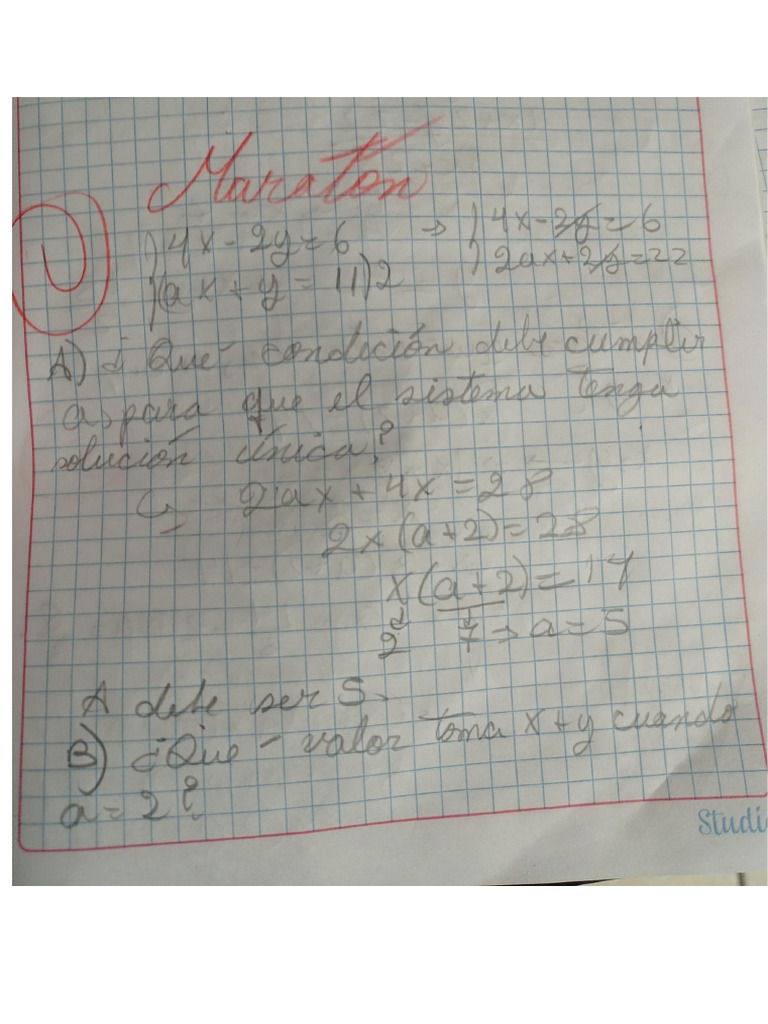 Maratón
4x - 2y = 6 → 4x - 2y = 6
(ax + y = 11)2 2ax + 2y = 22
A) ¿Qué condición debe cumplir
a, para que el sistema tenga
solución única?
↳ 2ax + 4x = 28
2x(a+2) = 28
x(a+2) = 14
2 7 → a = 5
A debe ser 5.
B) ¿Qué valor toma x + y cuando
a = 2?
Studi